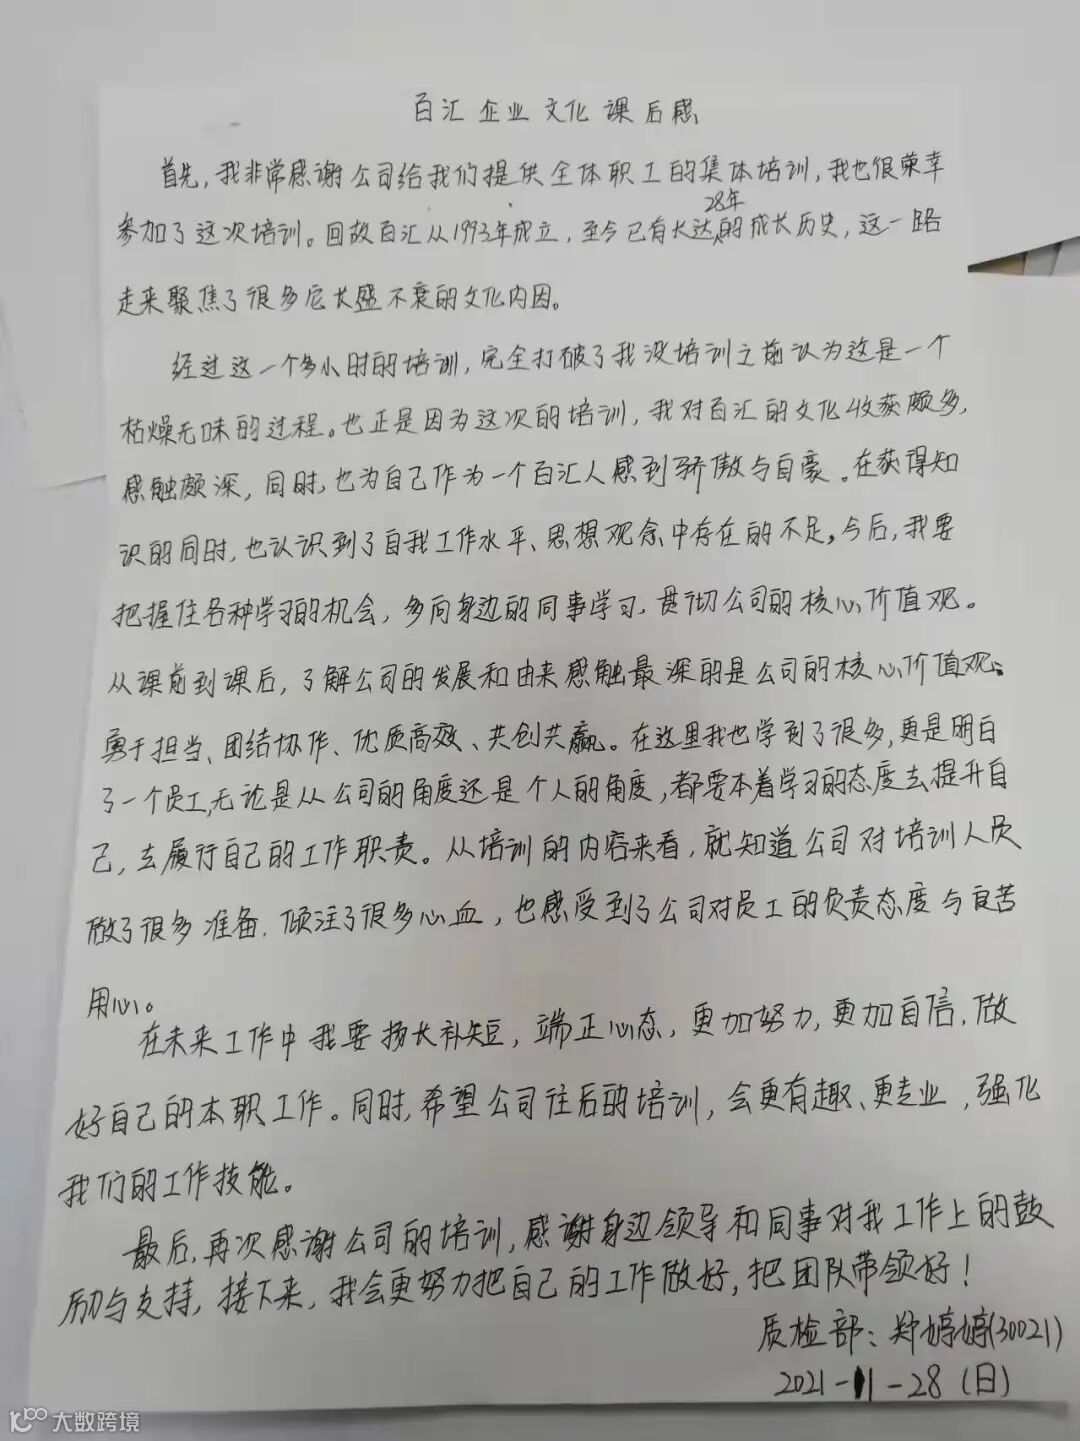 百汇企业文化课后感
首先,我非常感谢公司给我们提供全体职工的集体培训,我也很荣幸
参加了这次培训。回故百汇从1993年成立,至今已有长达28年的成长历史,这一路
走来聚焦了很多足长盛不衰的文化内因。
经过这一个多小时的培训,完全打破了我没培训之前认为这是一个
枯燥无味的过程。也正是因为这次的培训,我对百汇的文化收获颇多,
感触颇深,同时,也为自己作为一个百汇人感到骄傲与自豪。在获得知
识的同时,也认识到了自我工作水平、思想观念中存在的不足。今后,我要
把握住各种学习的机会,多向身边的同事学习,贯彻公司的核心价值观。
从课前到课后,了解公司的发展和由来感触最深的是公司的核心价值观:
勇于担当、团结协作、优质高效、共创共赢。在这里我也学到了很多,更是明白
了一个员工,无论是从公司的角度还是个人的角度,都要本着学习的态度去提升自
己,去履行自己的工作职责。从培训的内容来看,就知道公司对培训人员
做了很多准备,倾注了很多心血,也感受到了公司对员工的负责态度与良苦
用心。
在未来工作中我要扬长补短,端正心态,更加努力,更加自信,做
好自己的本职工作。同时,希望公司往后的培训,会更有趣、更专业,强化
我们的工作技能。
最后,再次感谢公司的培训,感谢身边领导和同事对我工作上的鼓
励与支持,接下来,我会更努力把自己的工作做好,把团队带领好!
质检部:郑婷婷(30021)
2021-11-28(日)
大数跨境